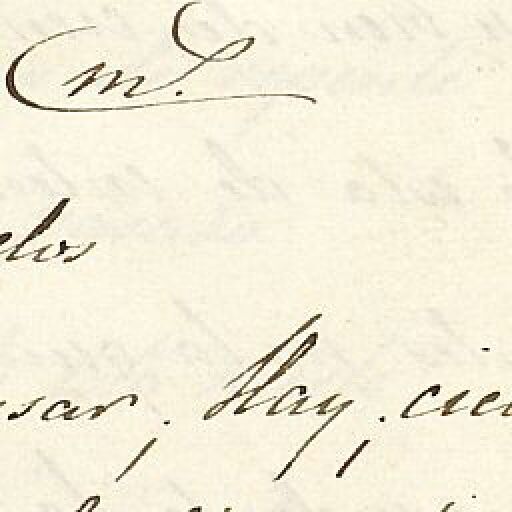 m.
elos
sar; Hay; cie